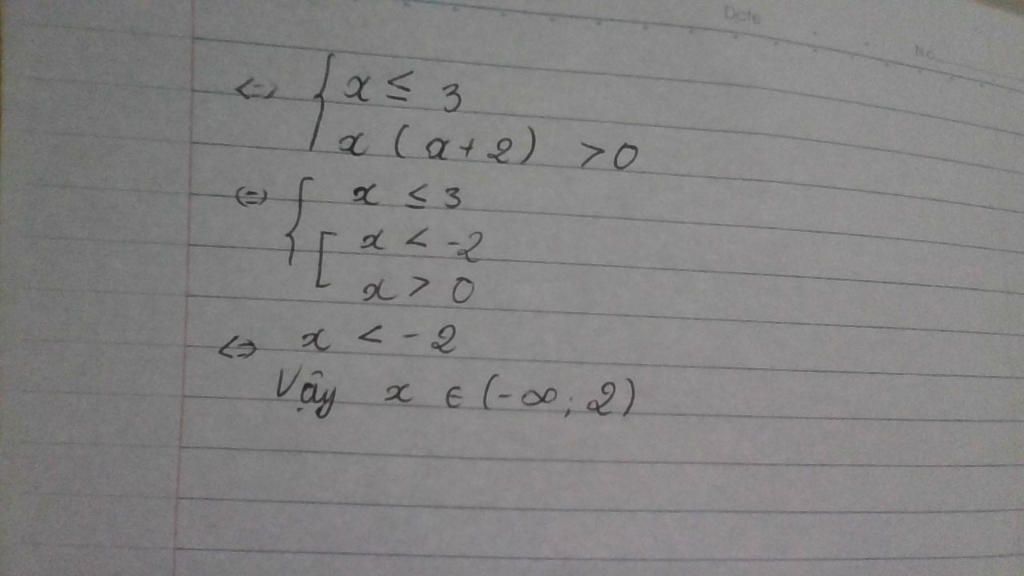 Date
No.
⇔ { x ≤ 3
x (x+2) > 0
⇔ { x ≤ 3
[ x < -2
x > 0
⇔ x < -2
Vậy x ∈ (-∞; 2)